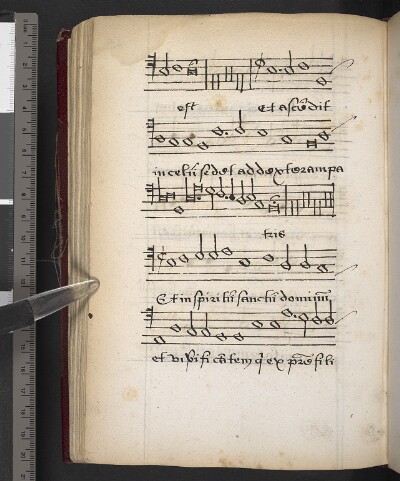 est Et ascēdit
in celū sedet ad dexterā pa
tris
Et in spiritū sanctū dominū
et vivificātem q̄ ex pr̄e fili